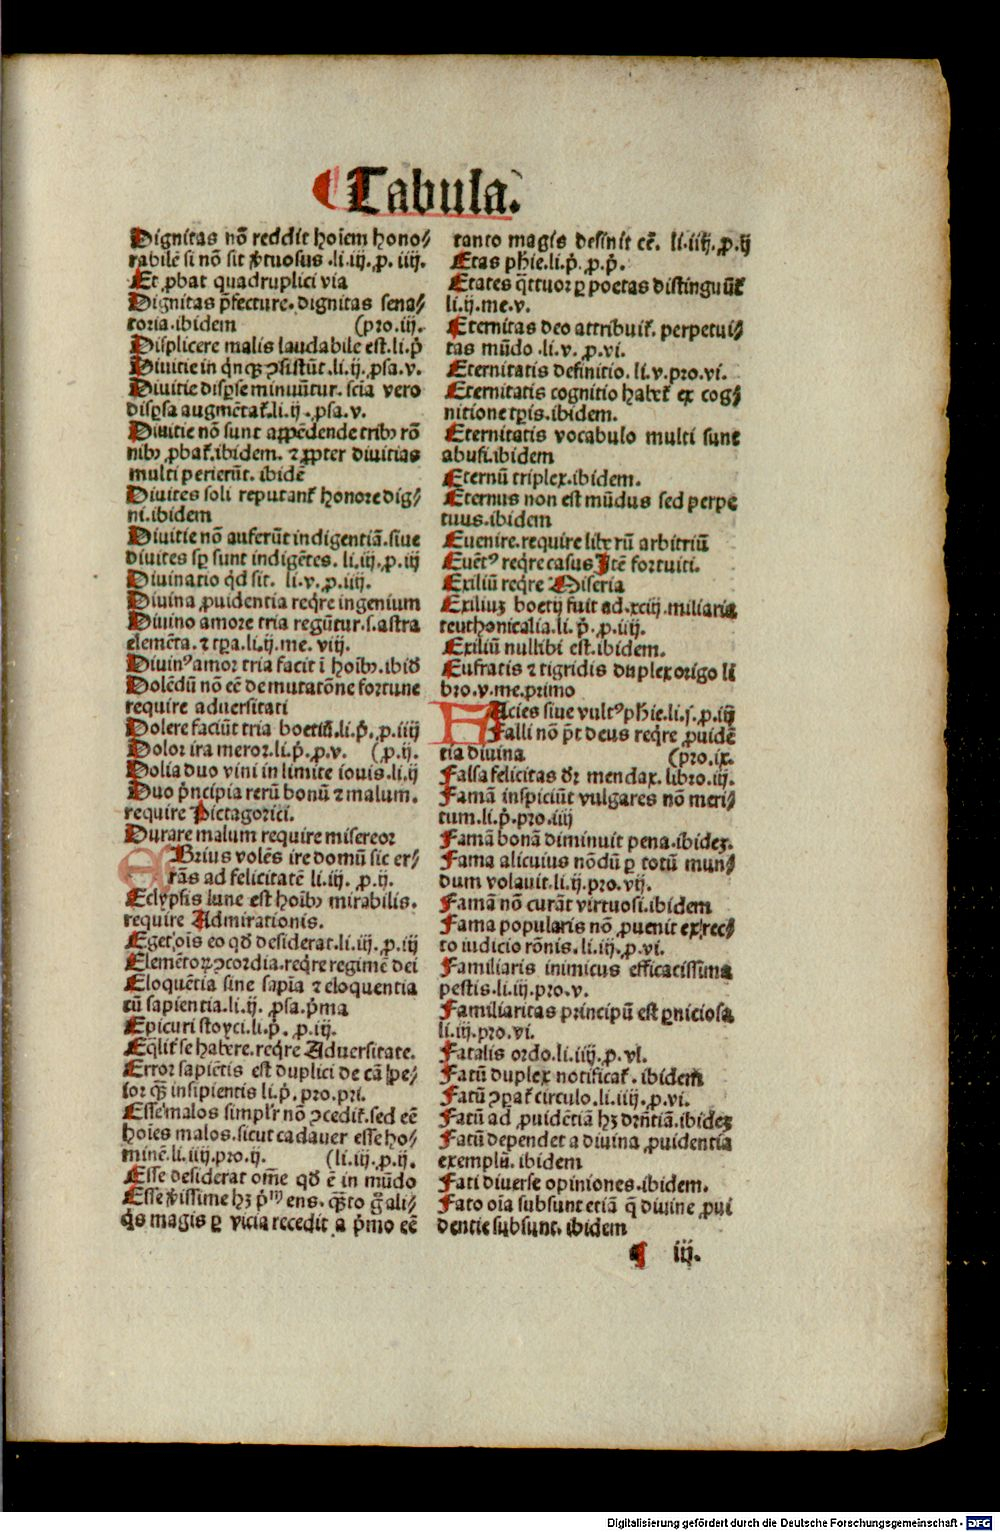 Tabula.
Dignitas nō reddit hoīem hono⸗
rabilē si nō sit v̓tuosus .li.iij. ꝓ. iiij.
Et ꝓbat quadruplici via
Dignitas p̄fecture. dignitas sena⸗
toria.ibidem (pro.iij.
Displicere malis laudabile est.li.p̓
Diuitie in qͥnqꝫ ↄsistūt.li.ij.ꝓsa.v.
Diuitie disꝑse minuūtur. scīa vero
disꝑsa augmētat̄.li.ij.ꝓsa.v.
Diuitie nō sunt appēdende tribꝰ rō
nibꝰ ꝓbat̄.ibidem. ⁊ ꝓpter diuitias
multi perierūt. ibidē
Diuites soli reputant̄ honore dig⸗
ni.ibidem
Diuitie nō auferūt indigentiā.siue
diuites sꝑ sunt indigētes. li.iij.ꝓ.iij
Diuinatio qͥd sit. li.v.ꝓ.iiij.
Diuina ꝓuidentia reqͥre ingenium
Diuino amore tria regūtur.s.astra
elemēta.⁊ tꝑa.li.ij.me. viij.
Diuinꝰ amor tria facit ī hoībꝰ.ibid̄
Dolēdū nō eē de mutatōne fortune
require aduersitati
Dolere faciūt tria boetiū.li.p̓.ꝓ.iiij
Dolor ira meror.li.p̓.ꝓ.v. (ꝓ.ij.
Dolia duo vini in limite iouis.li.ij
Duo p̓ncipia rerū bonū ⁊ malum.
require Pictagorici.
Durare malum require misereor
EBrius volēs ire domū sic er⸗
rās ad felicitatē li.iij. ꝓ.ij.
Eclypsis lune est hoībꝰ mirabilis.
require Admirationis.
Eget oīs eo qd̄ desiderat.li.iij.ꝓ.iij
Elemētoꝝ ↄcordia.reqͥre regimē dei
Eloquētia sine sapīa ⁊ eloquentia
cū sapientia.li.ij. ꝓsa.p̓ma
Epicuri stoyci.li.p̓. ꝓ.iij.
Eqͥlit̄ se habere.reqͥre Aduersitate.
Error sapiētis est duplici de cā pe⸗
ior qꝫ insipientis li.p̓. pro.pri.
Esse malos simplr̄ nō ↄcedit̄.sed eē
hoīes malos.sicut cadauer esse ho⸗
minē.li.iiij.pro.ij. (li.iij.ꝓ.ij.
Esse desiderat om̄e qd̄ ē in mūdo
Esse v̓issime hꝫ p̓mͫ ens. qꝫto gͣ ali⸗
qͥs magis ꝑ vicia recedit a p̓mo eē
tanto magis desinit eē. li.iiij.ꝓ.ij
Etas ph̄ie.li.p̓.ꝓ.p̓.
Etates qͣttuor ꝑ poetas distinguūt̄
li.ij.me.v.
Eternitas deo attribuit̄. perpetui⸗
tas mūdo .li.v. ꝓ.vi.
Eternitatis definitio. li.v.pro.vi.
Eternitatis cognitio habet̄ ex cog⸗
nitione tꝑis.ibidem.
Eternitatis vocabulo multi sunt
abusi.ibidem
Eternū triplex.ibidem.
Eternus non est mūdus sed perpe
tuus.ibidem
Euenire.require liberū arbitriū
Euētꝰ reqͥre casus Itē fortuiti.
Exiliū reqͥre Miseria
Exiliuꝫ boetij fuit ad.xciij.miliaria
teuthonicalia.li.p̓.ꝓ.iiij.
Exiliū nullibi est.ibidem.
Eufratis ⁊ tigridis duplex origo li
bro.v.me.primo
FAcies siue vultꝰ ph̄ie.li.j.ꝓ.iij
Falli nō pt̄ deus reqͥre ꝓuidē
tia diuina (pro.ix.
Falsa felicitas dr̄ mendax. libro.iij.
Famā inspiciūt vulgares nō meri⸗
tum.li.p̓.pro.iiij
Famā bonā diminuit pena.ibideꝫ.
Fama alicuius nōdū ꝑ totū mun⸗
dum volauit.li.ij.pro.vij.
Famā nō curāt virtuosi.ibidem
Fama popularis nō ꝓuenit ex rec⸗
to iudicio rōnis.li.iij.ꝓ.vi.
Familiaris inimicus efficacissima
pestis.li.iij.pro.v.
Familiaritas principū est ꝑniciosa
li.iij.pro.vi.
Fatalis ordo.li.iiij.ꝓ.vi.
Fatū duplex notificat̄. ibidem
Fatū ↄꝑat̄ circulo.li.iiij.ꝓ.vi.
Fatū ad ꝓuidētiā hꝫ dr̄ntiā.ibideꝫ
Fatū dependet a diuina ꝓuidentia
exemplū. ibidem
Fati diuerse opiniones.ibidem.
Fato oīa subsunt etiā q̄ diuine ꝓui
dentie subsunt. ibidem
iij.
Digitalisierung gefördert durch die Deutsche Forschungsgemeinschaft - DFG